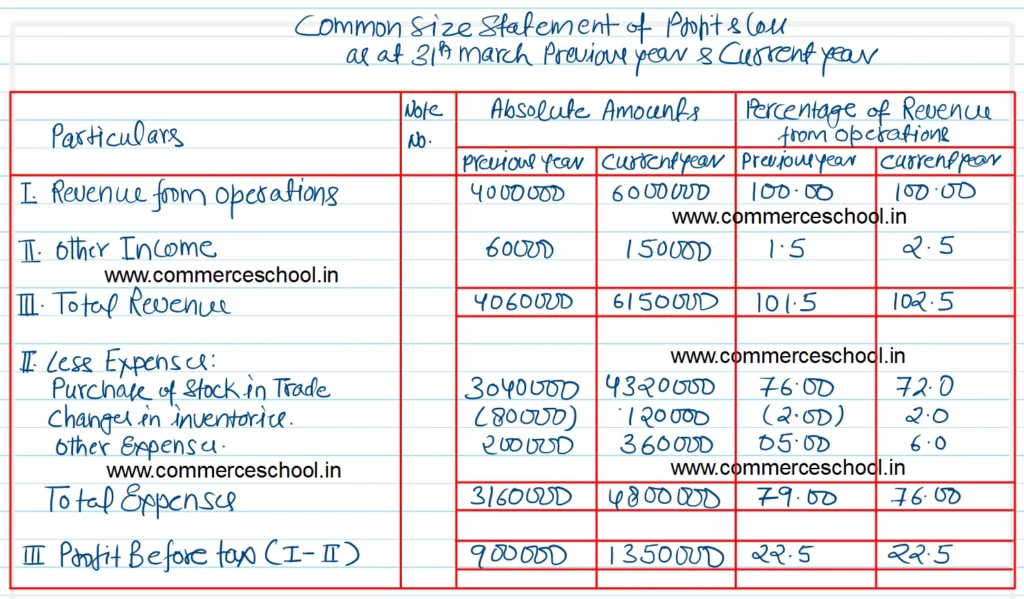 Common Size Statement of Profit & Loss
as at 31st March Previous year & Current year
Particulars Note No. Absolute Amounts Percentage of Revenue from operations
Previous year Current year Previous year Current year
I. Revenue from operations 4000000 6000000 100.00 100.00
www.commerceschool.in
II. Other Income 60000 150000 1.5 2.5
www.commerceschool.in
III. Total Revenue 4060000 6150000 101.5 102.5
II. Less Expenses: www.commerceschool.in
Purchase of Stock in Trade 3040000 4320000 76.00 72.0
Changes in inventories. (80000) 120000 (2.00) 2.0
Other Expenses. 200000 360000 05.00 6.0
www.commerceschool.in www.commerceschool.in
Total Expenses 3160000 4800000 79.00 76.00
III Profit Before tax (I-II) 900000 1350000 22.5 22.5